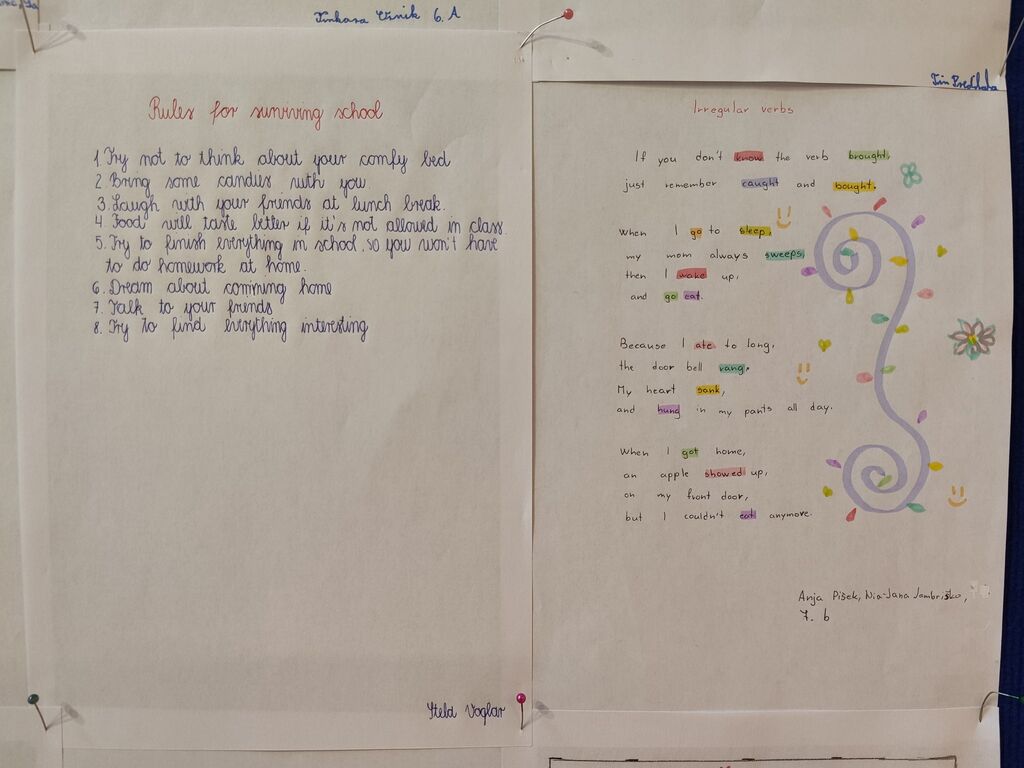 Tinkara Vinik 6. A
Rules for surviving school
1. Try not to think about your comfy bed
2. Bring some candies with you
3. Laugh with your friends at lunch break.
4. Food will taste better if it's not allowed in class.
5. Try to finish everything in school, so you won't have
to do homework at home.
6. Dream about comming home
7. Talk to your friends
8. Try to find everything interesting
Stela Voglar
Tin
Irregular verbs
If you don't know the verb brought,
just remember caught and bought.
When I go to sleep,
my mom always sweeps,
then I wake up,
and go eat.
Because I ate to long,
the door bell rang.
My heart sank,
and hung in my pants all day.
When I got home,
an apple showed up,
on my front door,
but I couldn't eat anymore.
Anja Pišek, Nia-Jana
7. b